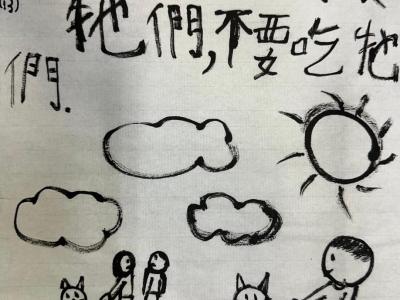 牠們,不要吃牠
們.